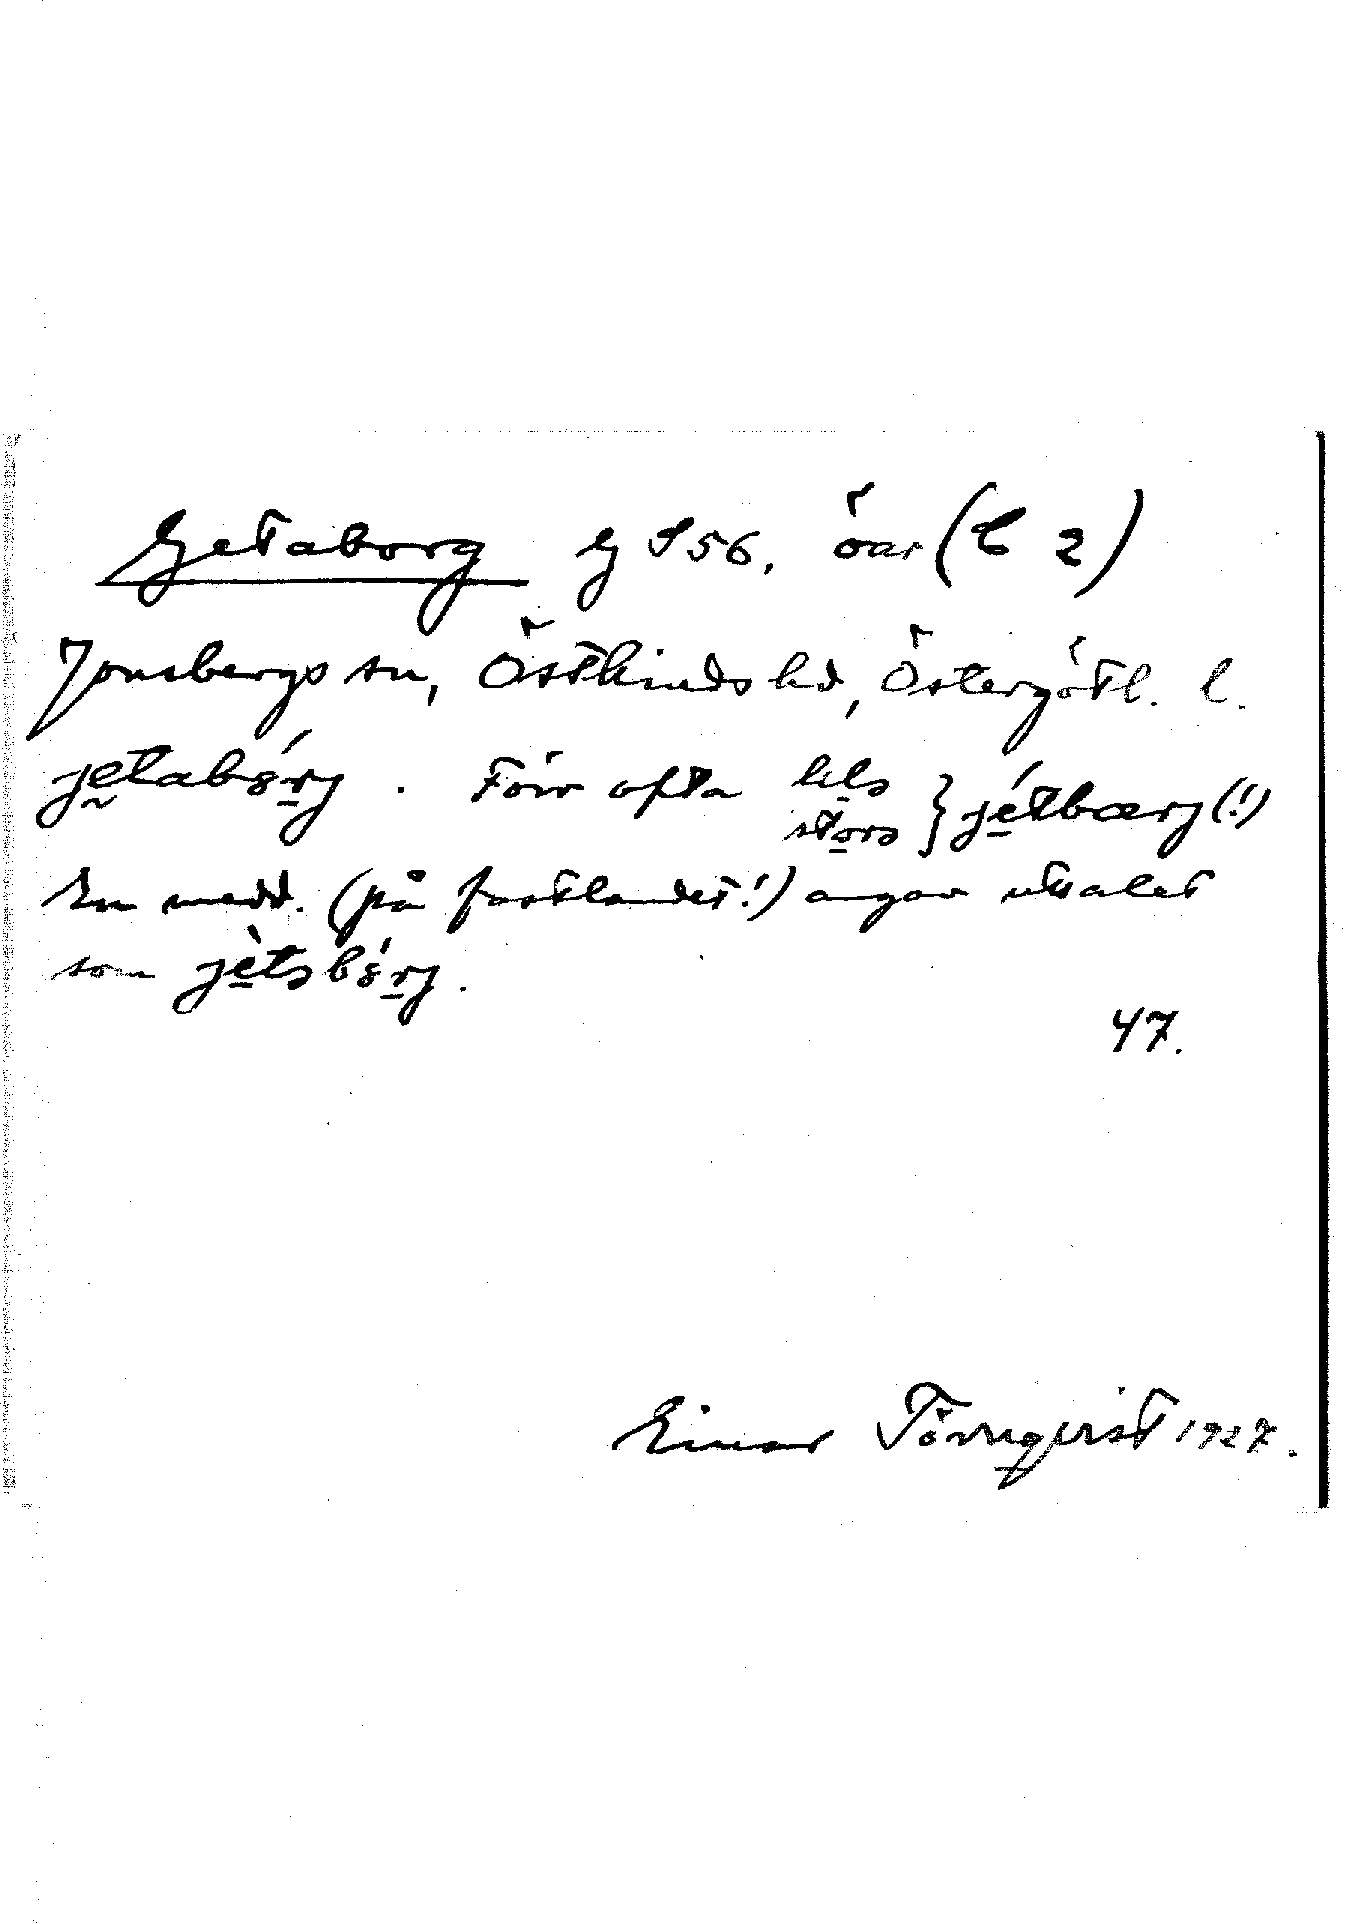 Getaborg G S 56, öar (C 2)
Jonsbergs sn, Östkinds hd, Östergötl. l.
jetabȣrj. Förr ofta lilə } jétbærj (!)
storə
En medd. (på fastlandet!) angav uttalet
som jètəbȣ́rj.
47.
Einar Törnqvist 1927.